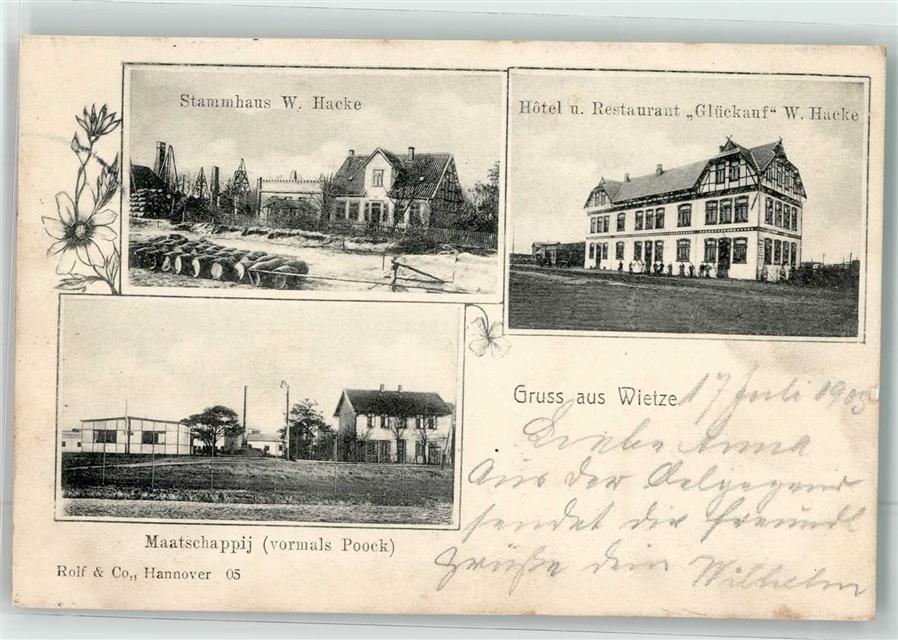 Stammhaus W. Hacke
Hôtel u. Restaurant „Glückauf“ W. Hacke
Gruss aus Wietze
17 Juli 1905
Liebe Anna
Aus der Oelgegend
sendet dir freundl
grüße dein Wilhelm
Maatschappij (vormals Poock)
Rolf & Co., Hannover 05